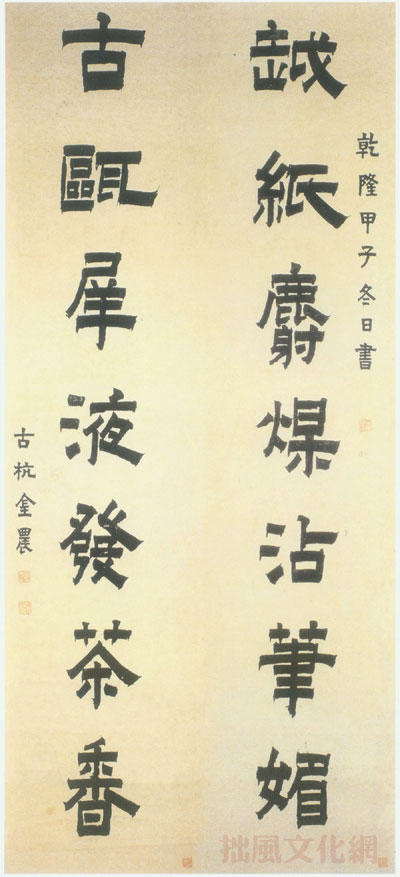 乾隆甲子冬日書
越紙麝煤沾筆媚
古甌犀液發茶香
古杭金農
拙風文化網